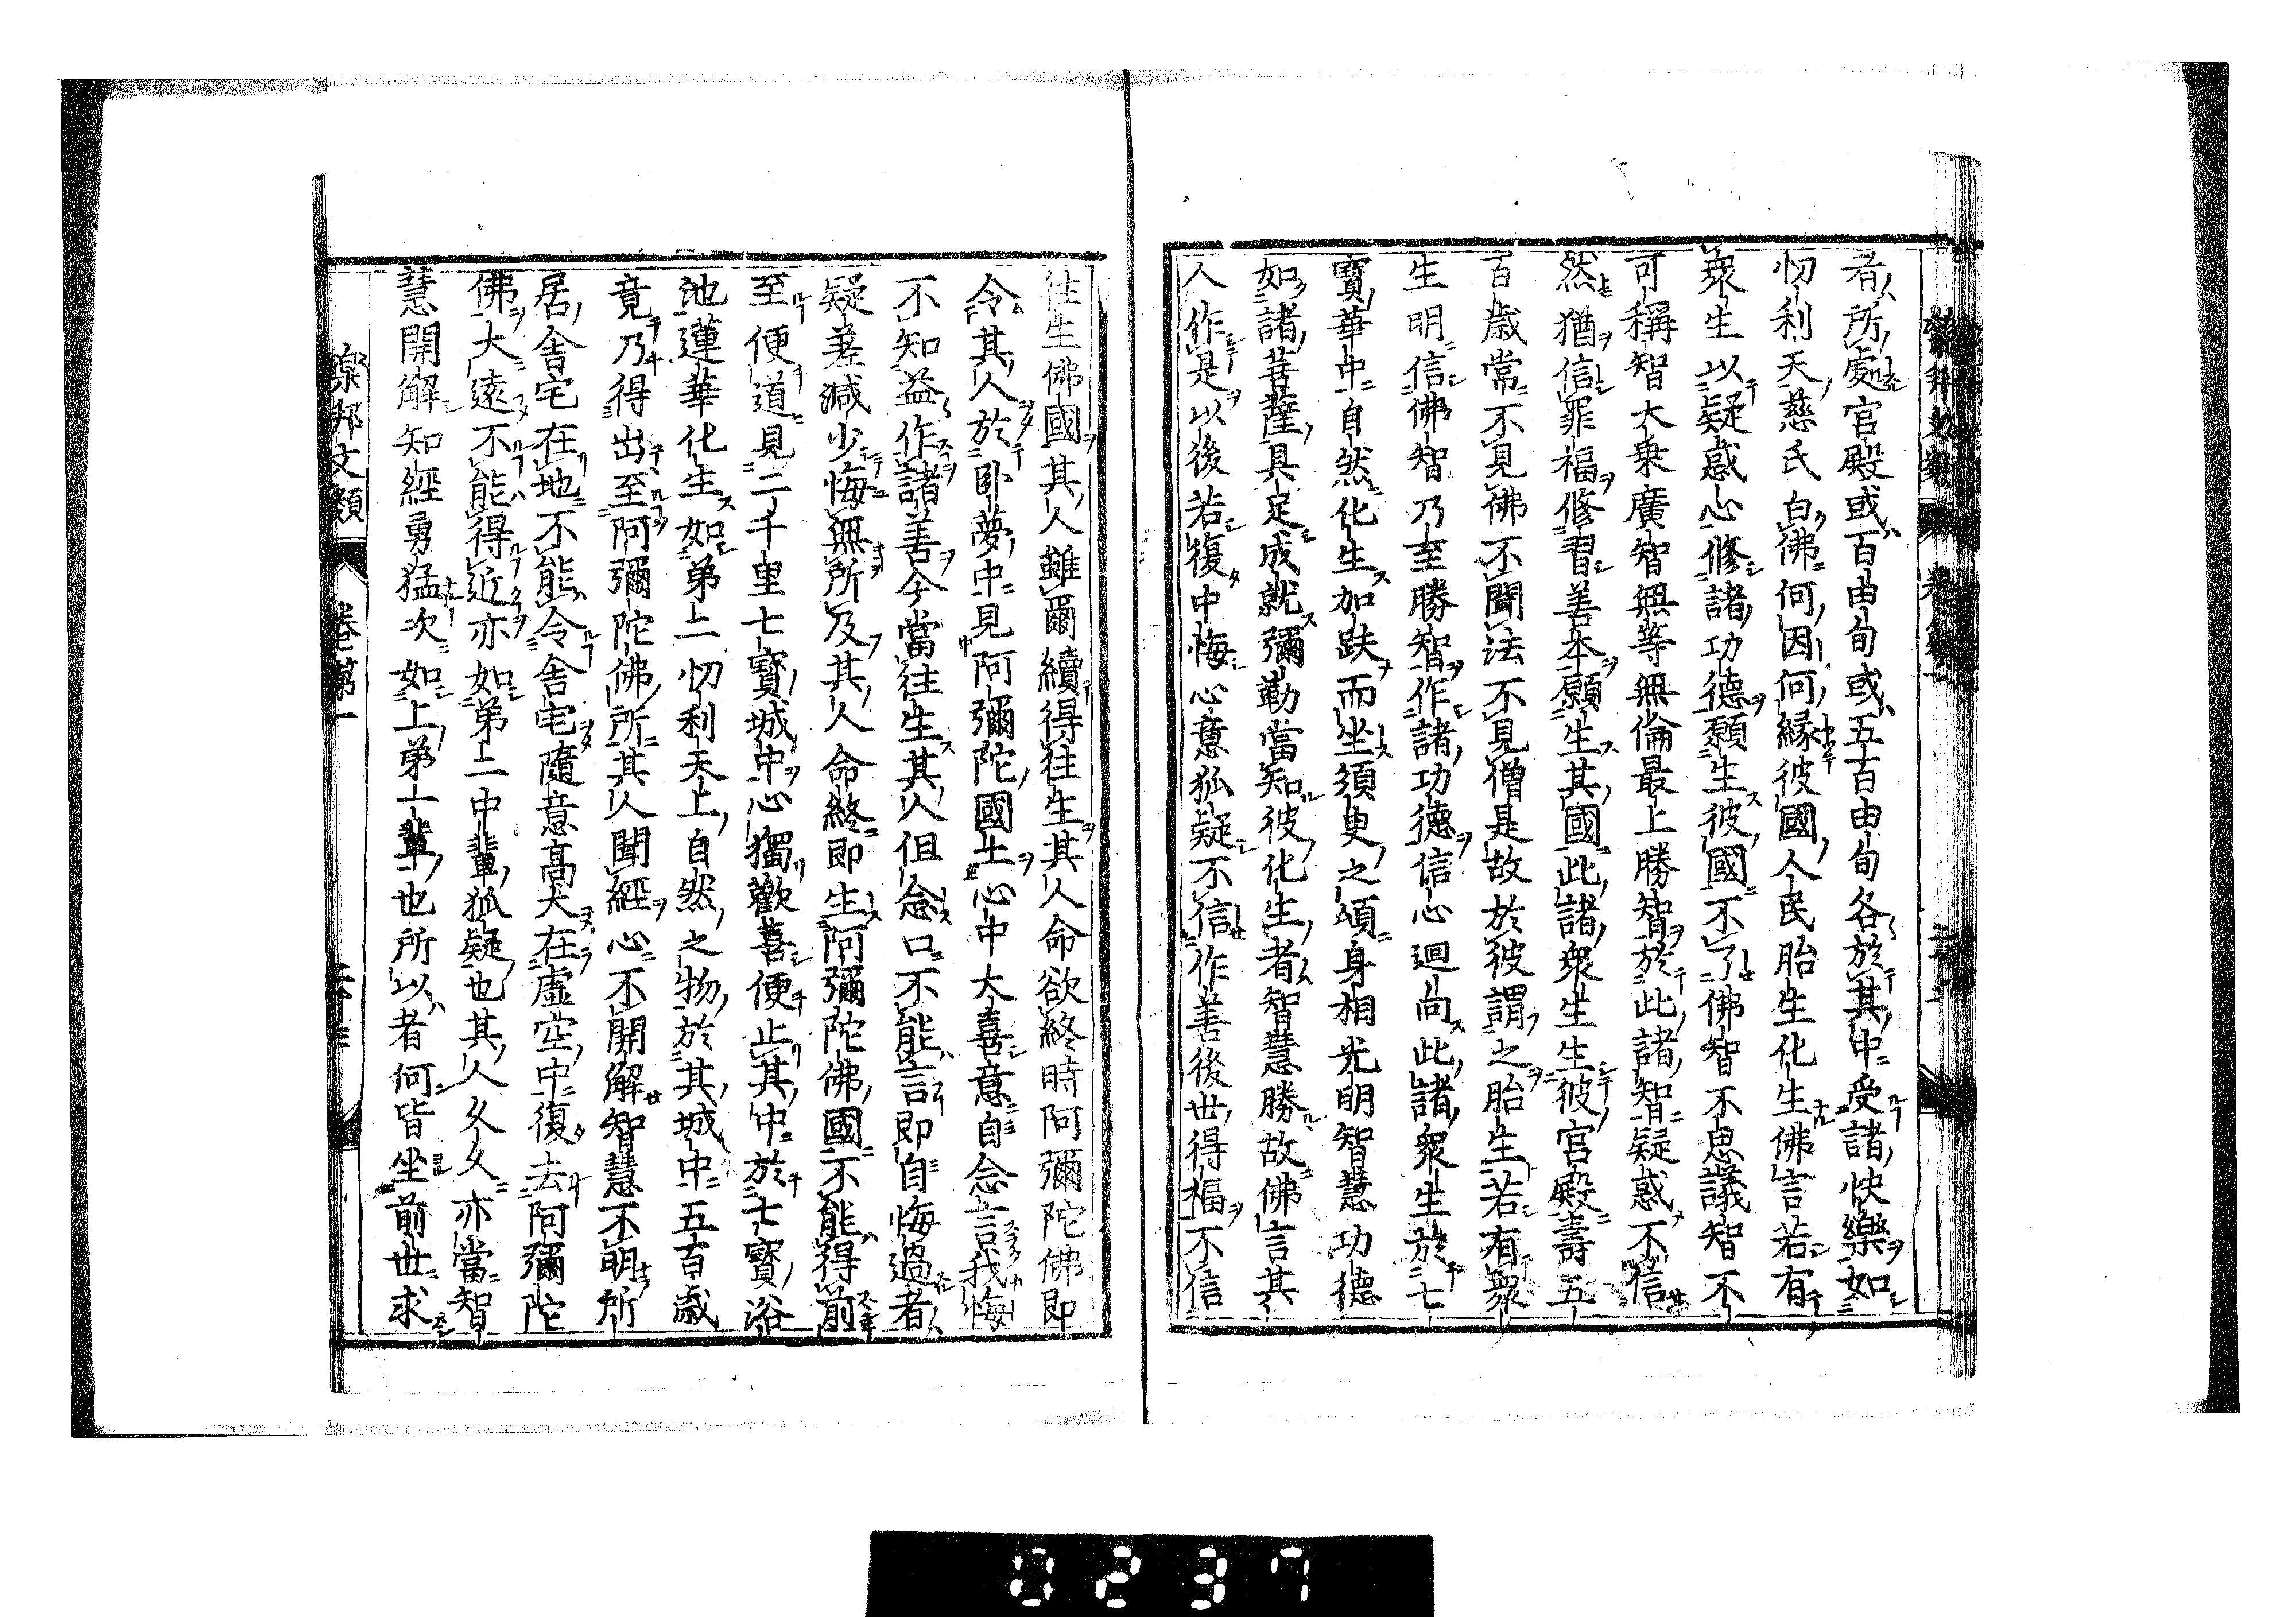 者所處宮殿或百由旬或五百由旬各於其中受諸快樂如
忉利天慈氏白佛何因何縁彼國人民胎生化生佛言若有
衆生以疑惑心修諸功德願生彼國不了佛智不思議智不
可稱智大乗廣智無等無倫最上勝智於此諸智疑惑不信
然猶信罪福修習善本願生其國此諸衆生生彼宮殿壽五
百歳常不見佛不聞法不見僧是故於彼謂之胎生若有衆
生明信佛智乃至勝智作諸功德信心迴向此諸衆生於七
寶華中自然化生加趺而坐須臾之頃身相光明智慧功德
如諸菩薩具足成就彌勒當知彼化生者智慧勝故佛言其
人作是以後若復中悔心意狐疑不信作善後世得福不信
往生佛國其人雖爾續得往生其人命欲終時阿彌陀佛即
令其人於卧夢中見阿彌陀國土心中大喜意自念言我悔
不知益作諸善今當往生其人但念口不能言即自悔過者
疑差減少悔無所及其人命終即生阿彌陀佛國不能得前
至便道見二千里七寶城中心獨歡喜便止其中於七寶浴
池蓮華化生如第二忉利天上自然之物於其城中五百歳
竟乃得出至阿彌陀佛所其人聞經心不開解智慧不明所
居舎宅在地不能令舎宅隨意高大在虚空中復去阿彌陀
佛大遠不能得近亦如第二中輩狐疑也其人久久亦當智
慧開解知經勇猛次如上第一輩也所以者何皆坐前世求
樂邦文類 卷第一